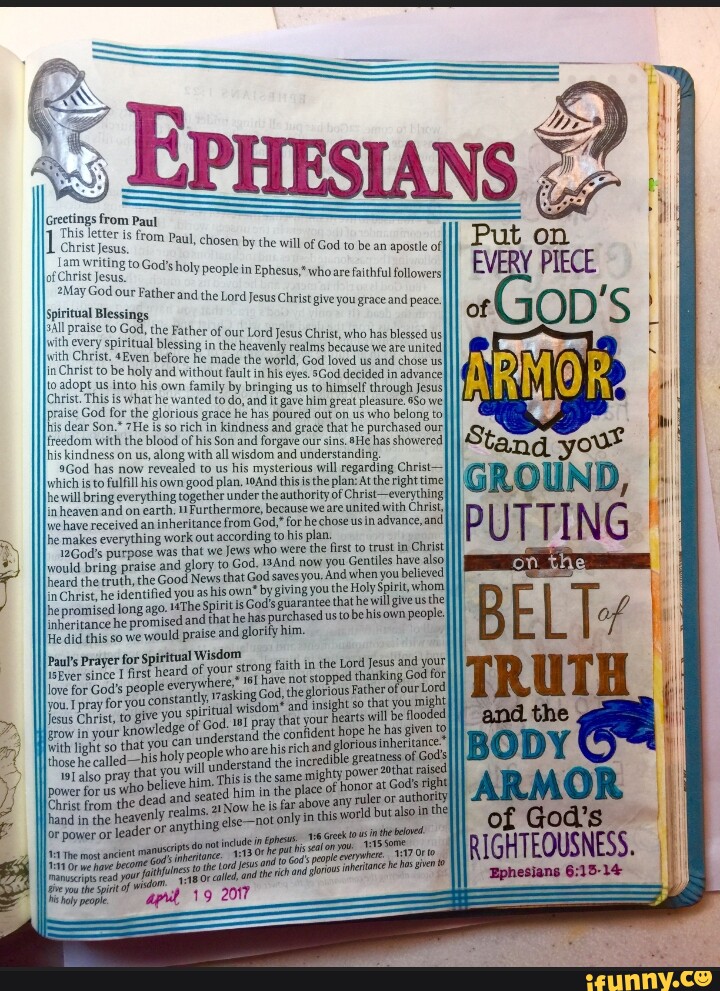 EPHESIANS
Greetings from Paul
1 This letter is from Paul, chosen by the will of God to be an apostle of
Christ Jesus.
I am writing to God's holy people in Ephesus,* who are faithful followers
of Christ Jesus.
2May God our Father and the Lord Jesus Christ give you grace and peace.
Spiritual Blessings
3All praise to God, the Father of our Lord Jesus Christ, who has blessed us
with every spiritual blessing in the heavenly realms because we are united
with Christ. 4Even before he made the world, God loved us and chose us
in Christ to be holy and without fault in his eyes. 5God decided in advance
to adopt us into his own family by bringing us to himself through Jesus
Christ. This is what he wanted to do, and it gave him great pleasure. 6So we
praise God for the glorious grace he has poured out on us who belong to
his dear Son.* 7He is so rich in kindness and grace that he purchased our
freedom with the blood of his Son and forgave our sins. 8He has showered
his kindness on us, along with all wisdom and understanding.
9God has now revealed to us his mysterious will regarding Christ—
which is to fulfill his own good plan. 10And this is the plan: At the right time
he will bring everything together under the authority of Christ—everything
in heaven and on earth. 11Furthermore, because we are united with Christ,
we have received an inheritance from God,* for he chose us in advance, and
he makes everything work out according to his plan.
12God's purpose was that we Jews who were the first to trust in Christ
would bring praise and glory to God. 13And now you Gentiles have also
heard the truth, the Good News that God saves you. And when you believed
in Christ, he identified you as his own* by giving you the Holy Spirit, whom
he promised long ago. 14The Spirit is God's guarantee that he will give us the
inheritance he promised and that he has purchased us to be his own people.
He did this so we would praise and glorify him.
Paul's Prayer for Spiritual Wisdom
15Ever since I first heard of your strong faith in the Lord Jesus and your
love for God's people everywhere,* 16I have not stopped thanking God for
you. I pray for you constantly, 17asking God, the glorious Father of our Lord
Jesus Christ, to give you spiritual wisdom* and insight so that you might
grow in your knowledge of God. 18I pray that your hearts will be flooded
with light so that you can understand the confident hope he has given to
those he called—his holy people who are his rich and glorious inheritance.*
19I also pray that you will understand the incredible greatness of God's
power for us who believe him. This is the same mighty power 20that raised
Christ from the dead and seated him in the place of honor at God's right
hand in the heavenly realms. 21Now he is far above any ruler or authority
or power or leader or anything else—not only in this world but also in the
1:1 The most ancient manuscripts do not include in Ephesus. 1:6 Greek to us in the beloved.
1:11 Or we have become God's inheritance. 1:13 Or he put his seal on you. 1:15 Some
manuscripts read your faithfulness to the Lord Jesus and to God's people everywhere. 1:17 Or to
give you the Spirit of wisdom. 1:18 Or called, and the rich and glorious inheritance he has given to
his holy people.
april 19 2017
Put on
EVERY PIECE
of GOD'S
ARMOR.
Stand your
GROUND,
PUTTING
on the
BELT of
TRUTH
and the
BODY
ARMOR
of God's
RIGHTEOUSNESS.
Ephesians 6:13-14
ifunny.co